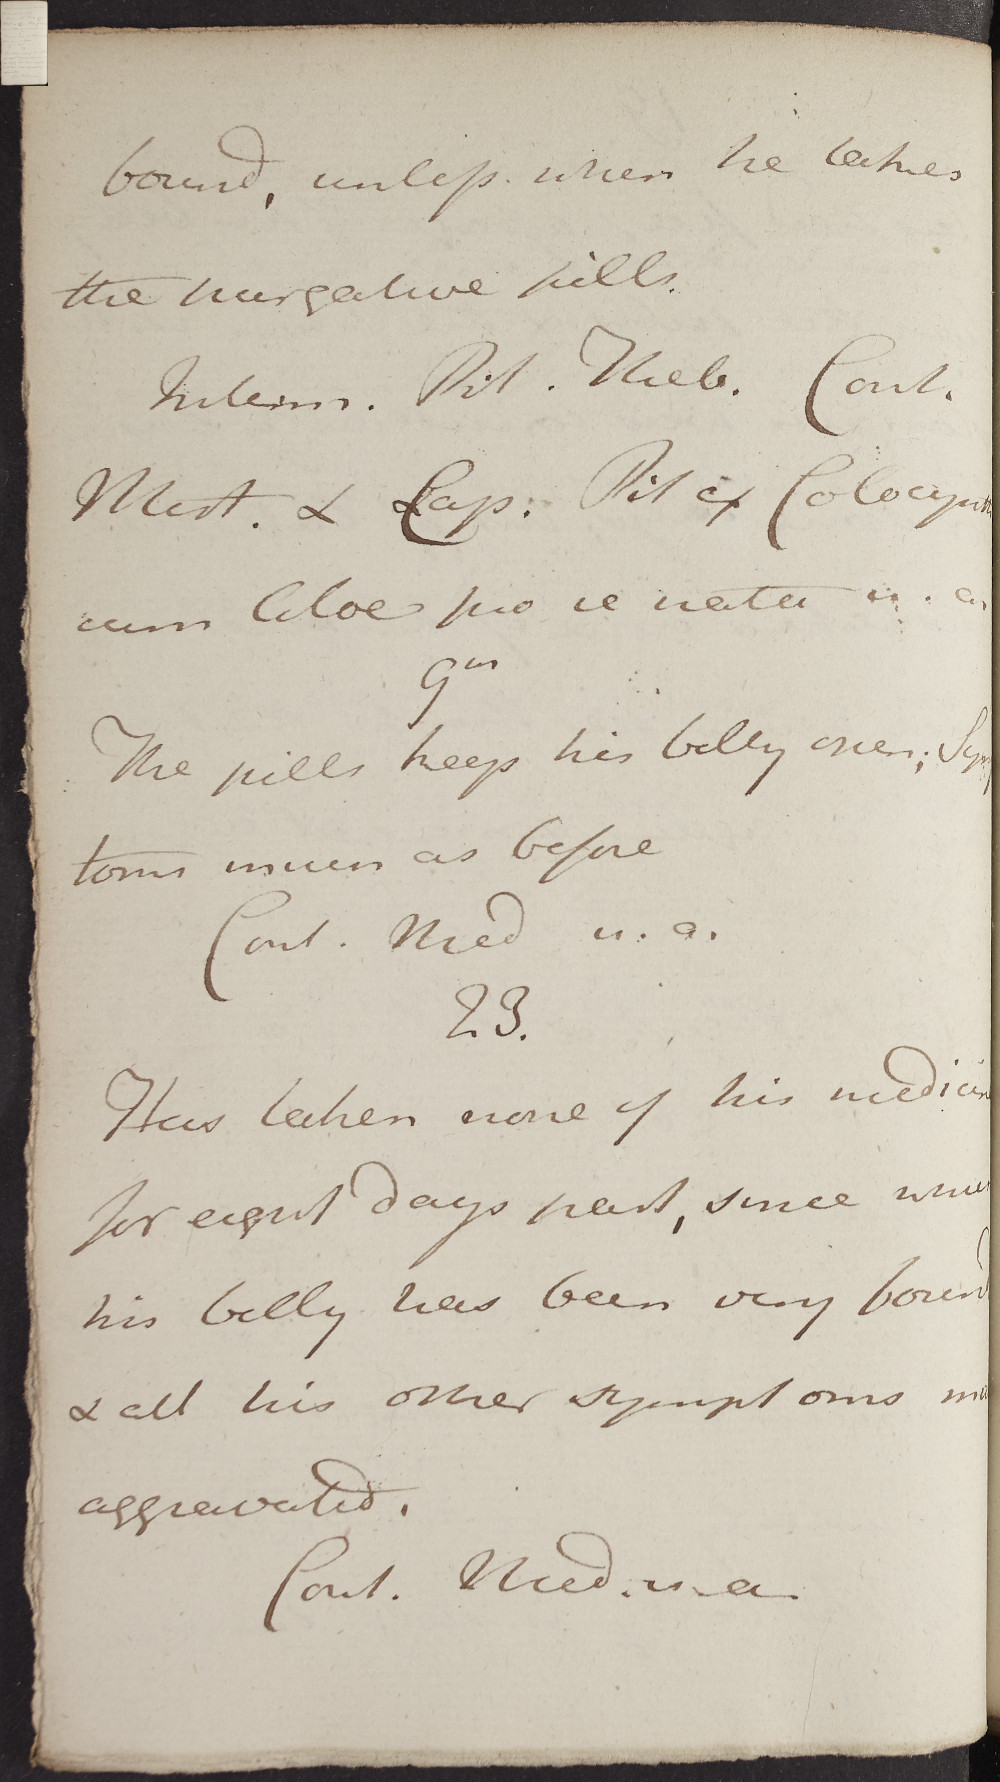 bound, unless when he takes
the purgative pills.
Interm. Pil. Theb. Cont.
Mist. & Cap. Pil ex Colocynth
cum Aloe pro re nata u. a
9th
The pills keep his belly open; Symp
toms much as before
Cont. Med u. a.
23.
Has taken none of his medicin
for eight days past, since when
his belly has been very bound
& all his other symptoms
aggravated.
Cont. Med. u. a